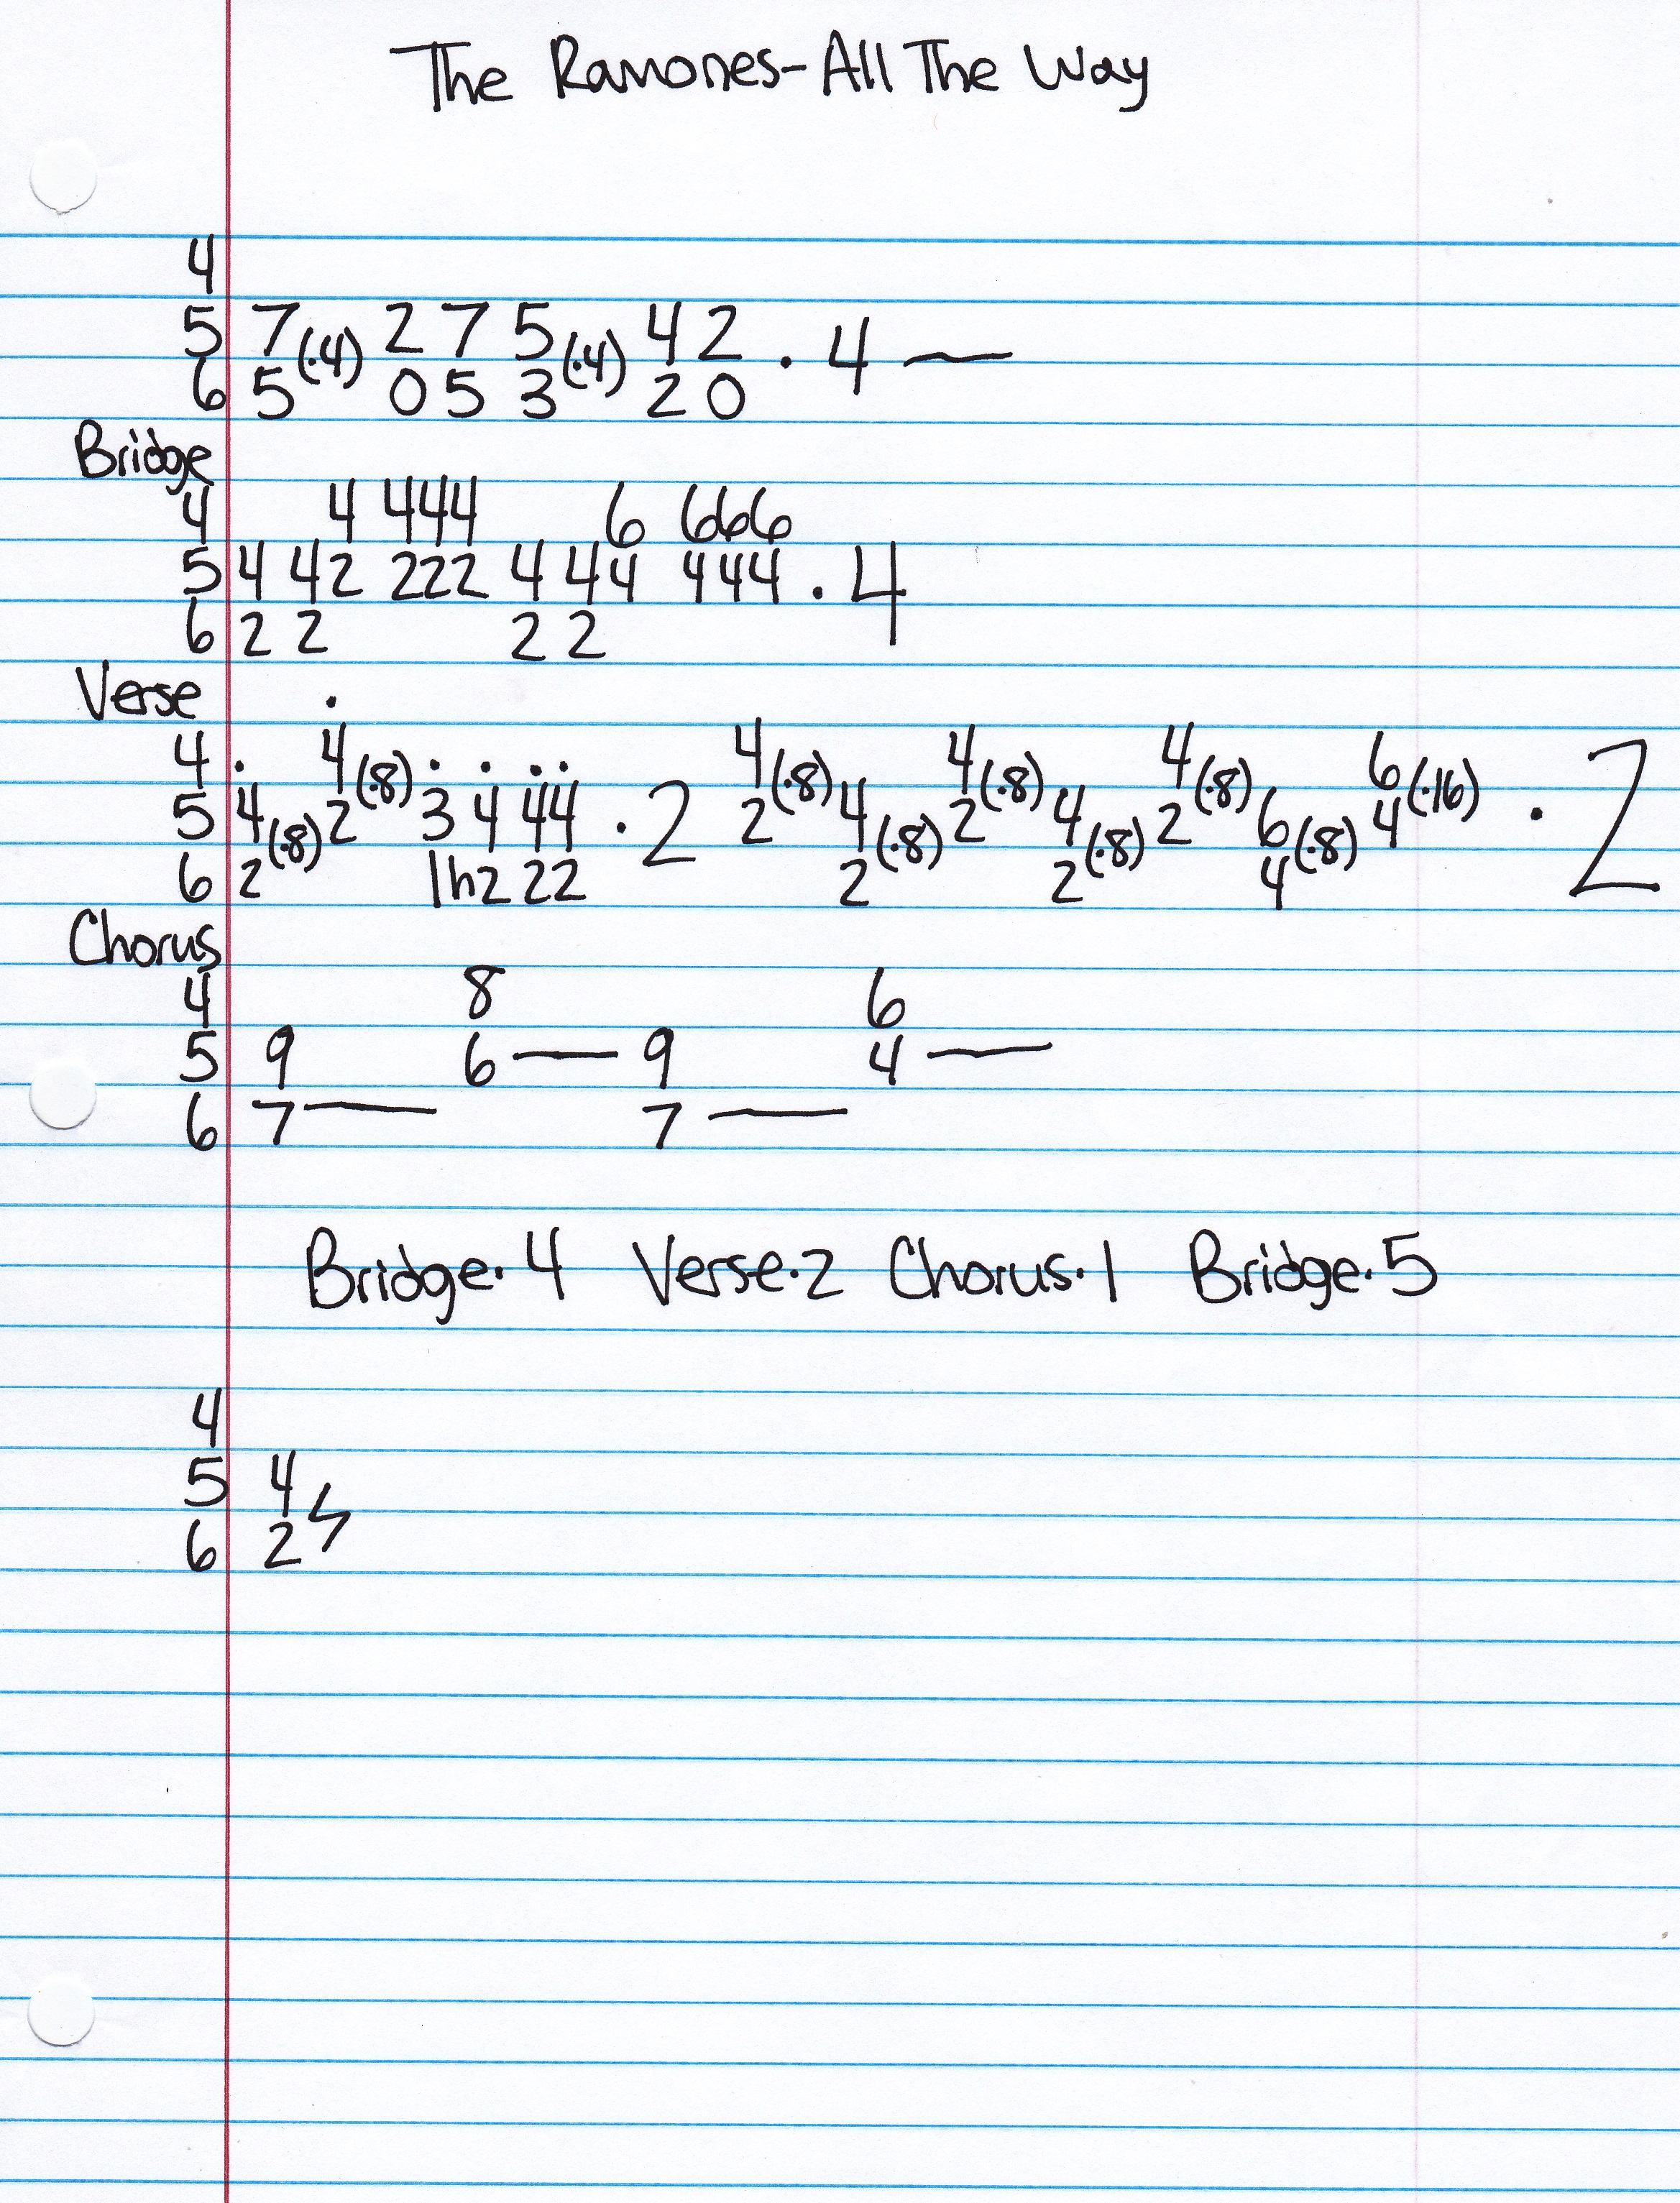 The Ramones-All The Way
4
5 7(·4) 2 7 5(·4) 4 2 · 4 —
6 5 0 5 3 2 0
Bridge
4 4 444 6 666
5 4 4 2 222 4 4 4 444 · 4
6 2 2 2 2
Verse ·
4 · 4(·8) · · · · 4(·8) 4(·8) 4(·8) 6(·16)
5 4(·8) 2 3 4 44 · 2 2 4(·8) 2 4(·8) 2 6(·8) 4 · 2
6 2 1h2 22 2 2 4
Chorus
4 8 6
5 9 6 — 9 4 —
6 7 — 7 —
Bridge·4 Verse·2 Chorus·1 Bridge·5
4
5 4
6 2